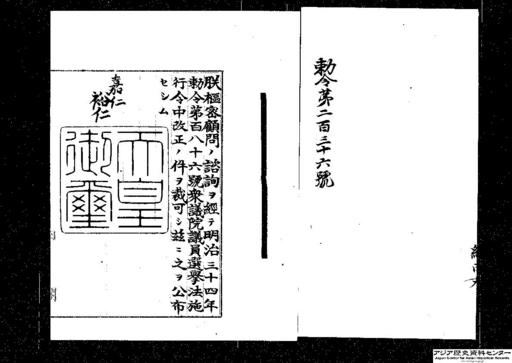 勅令第二百三十六號
朕樞密顧問ノ諮詢ヲ經テ明治三十四年
勅令第百八十六號衆議院議員選擧法施
行令中改正ノ件ヲ裁可シ玆ニ之ヲ公布
セシム
嘉仁
裕仁
天皇
御璽
アジア歴史資料センター
Japan Center for Asian Historical Records